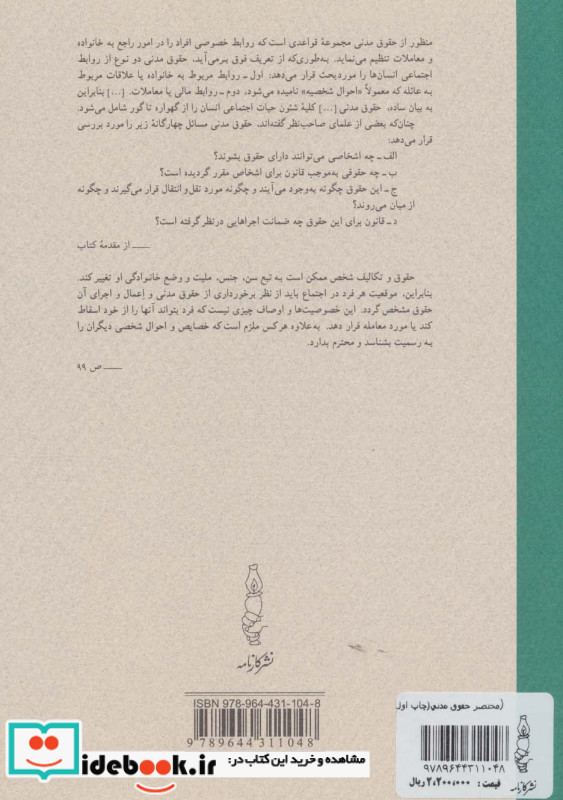 منظور از حقوق مدنی مجموعهٔ قواعدی است که روابط خصوصی افراد را در امور راجع به خانواده
و معاملات تنظیم می‌نماید. به‌طوری‌که از تعریف فوق برمی‌آید، حقوق مدنی دو نوع از روابط
اجتماعی انسان‌ها را موردبحث قرار می‌دهد: اول ـ روابط مربوط به خانواده یا علاقات مربوط
به عائله که معمولاً «احوال شخصیه» نامیده می‌شود، دوم ـ روابط مالی یا معاملات. [...] بنابراین
به بیان ساده، حقوق مدنی [...] کلیهٔ شئون حیات اجتماعی انسان را از گهواره تا گور شامل می‌شود.
چنان‌که بعضی از علمای صاحب‌نظر گفته‌اند، حقوق مدنی مسائل چهارگانهٔ زیر را مورد بررسی
قرار می‌دهد:
الف ـ چه اشخاصی می‌توانند دارای حقوق بشوند؟
ب ـ چه حقوقی به‌موجب قانون برای اشخاص مقرر گردیده است؟
ج ـ این حقوق چگونه به‌وجود می‌آیند و چگونه مورد نقل‌وانتقال قرار می‌گیرند و چگونه
از میان می‌روند؟
د ـ قانون برای این حقوق چه ضمانت اجراهایی درنظر گرفته است؟
ـــــ از مقدمهٔ کتاب
حقوق و تکالیف شخص ممکن است به تبع سن، جنس، ملیت و وضع خانوادگی او تغییر کند.
بنابراین، موقعیت هر فرد در اجتماع باید از نظر برخورداری از حقوق مدنی و اِعمال و اجرای آن
حقوق مشخص گردد. این خصوصیت‌ها و اوصاف چیزی نیست که فرد بتواند آنها را از خود اسقاط
کند یا مورد معامله قرار دهد. به‌علاوه هرکس ملزم است که خصایص و احوال شخصی دیگران را
به رسمیت بشناسد و محترم بدارد.
ـــــ ص ۹۹
نشر کارنامه
ISBN 978-964-431-104-8
9 789644 311048
(مختصر حقوق مدنی(چاپ اول
۹۷۸۹۶۴۴۳۱۱۰۴۸
قیمت : ۲,۲۰۰,۰۰۰ ریال
نشر کارنامه
مشاهده و خرید این کتاب در:
idebook.ir